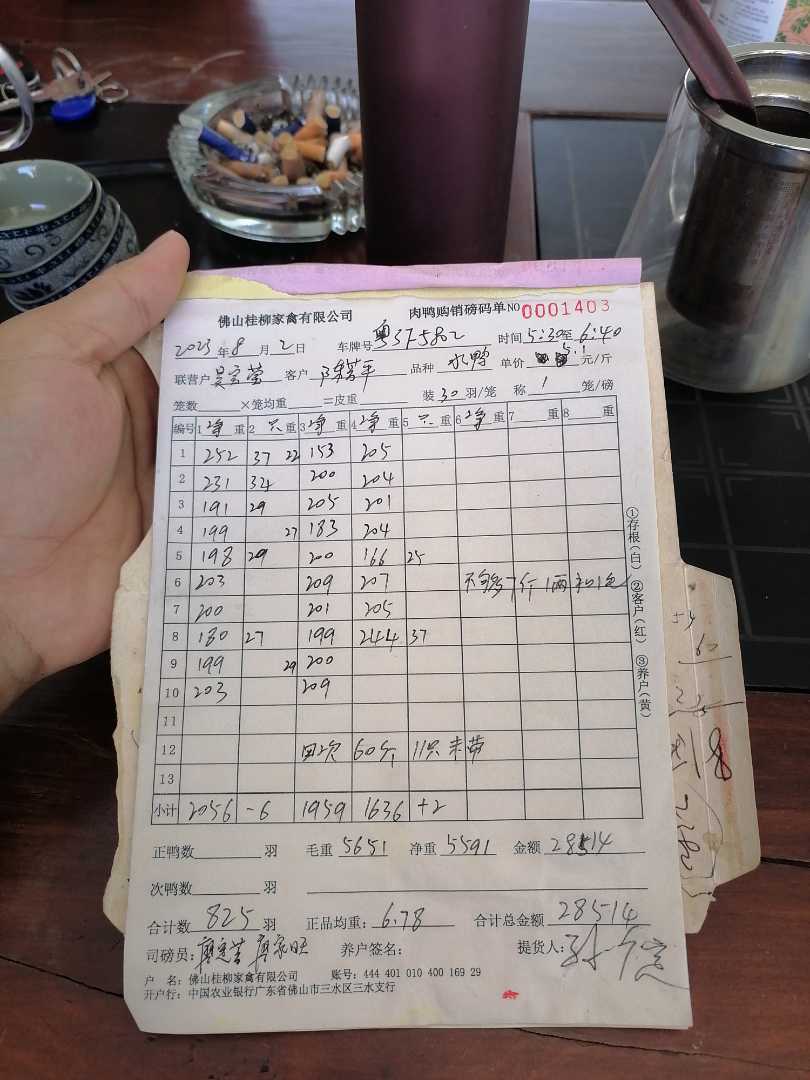 佛山桂柳家禽有限公司 肉鸭购销磅码单 NO 0001403
2023年8月2日 车牌号 粤 时间 5:30至6:40
联营户 客户 品种 水鸭 单价 5.1 元/斤
笼数 ×笼均重 =皮重 装30羽/笼 称1笼/磅
编号 1净重 2只重 3净重 4净重 5只重 6净重 7重 8重
1 252 37 22 153 205
2 231 34 200 204
3 191 29 205 201
4 199 27 183 204
5 198 29 200 166 25
6 203 209 207 不够7斤1两
7 200 201 205
8 180 27 199 244 37
9 199 29 200
10 203 209
11
12 四次 60斤 11只未带
13
小计 2056 -6 1959 1636 +2
①存根(白) ②客户(红) ③养户(黄)
正鸭数 羽 毛重 5651 净重 5591 金额 28514
次鸭数 羽
合计数 825 羽 正品均重: 6.78 合计总金额 28514
司磅员: 养户签名: 提货人:
户 名: 佛山桂柳家禽有限公司 账号: 444 401 010 400 169 29
开户行: 中国农业银行广东省佛山市三水区三水支行